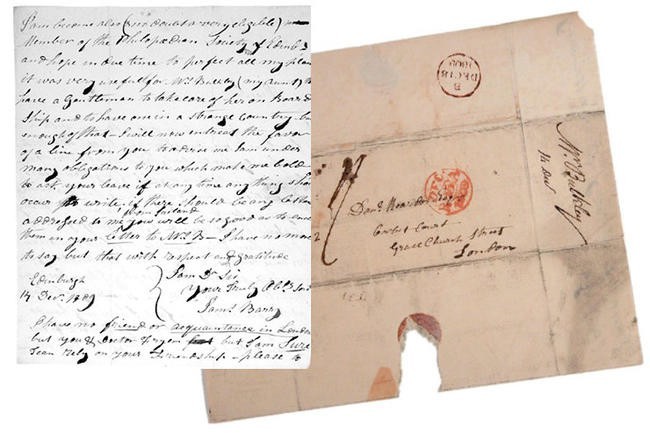 I am become also (no doubt a very eligible)
Member of the Philopædian Society of Edinb
and hope in due time to perfect all my plan
it was very usefull for Mrs. Bulkly (my aunt) to
have a Gentleman to take care of her on Board
Ship and to have one in a strange country. bu
enough of that — I will now entreat the favor
of a line from you to I am under
many obligations to you which make me bold
to ask your leave if at any time any thing sho
occur to write. if there should be any letter
from Ireland
addressed to me you will be so good as to en
them in your letter to Mrs. B — I have no more
to say but that with respect and gratitude
Edinburgh
14 Decr. 1809
I am Dr Sir
your Truly
Saml. Barry
I have no friend or acquaintance in London
but you & Doctor Fryer but I am Sure
I can rely on your Friendship — please to
B
DEC 18
1809
Mrs Bulkley
14 Decr
Danl. Reardon Esqr
Corbet Court
Grace Church Street
London